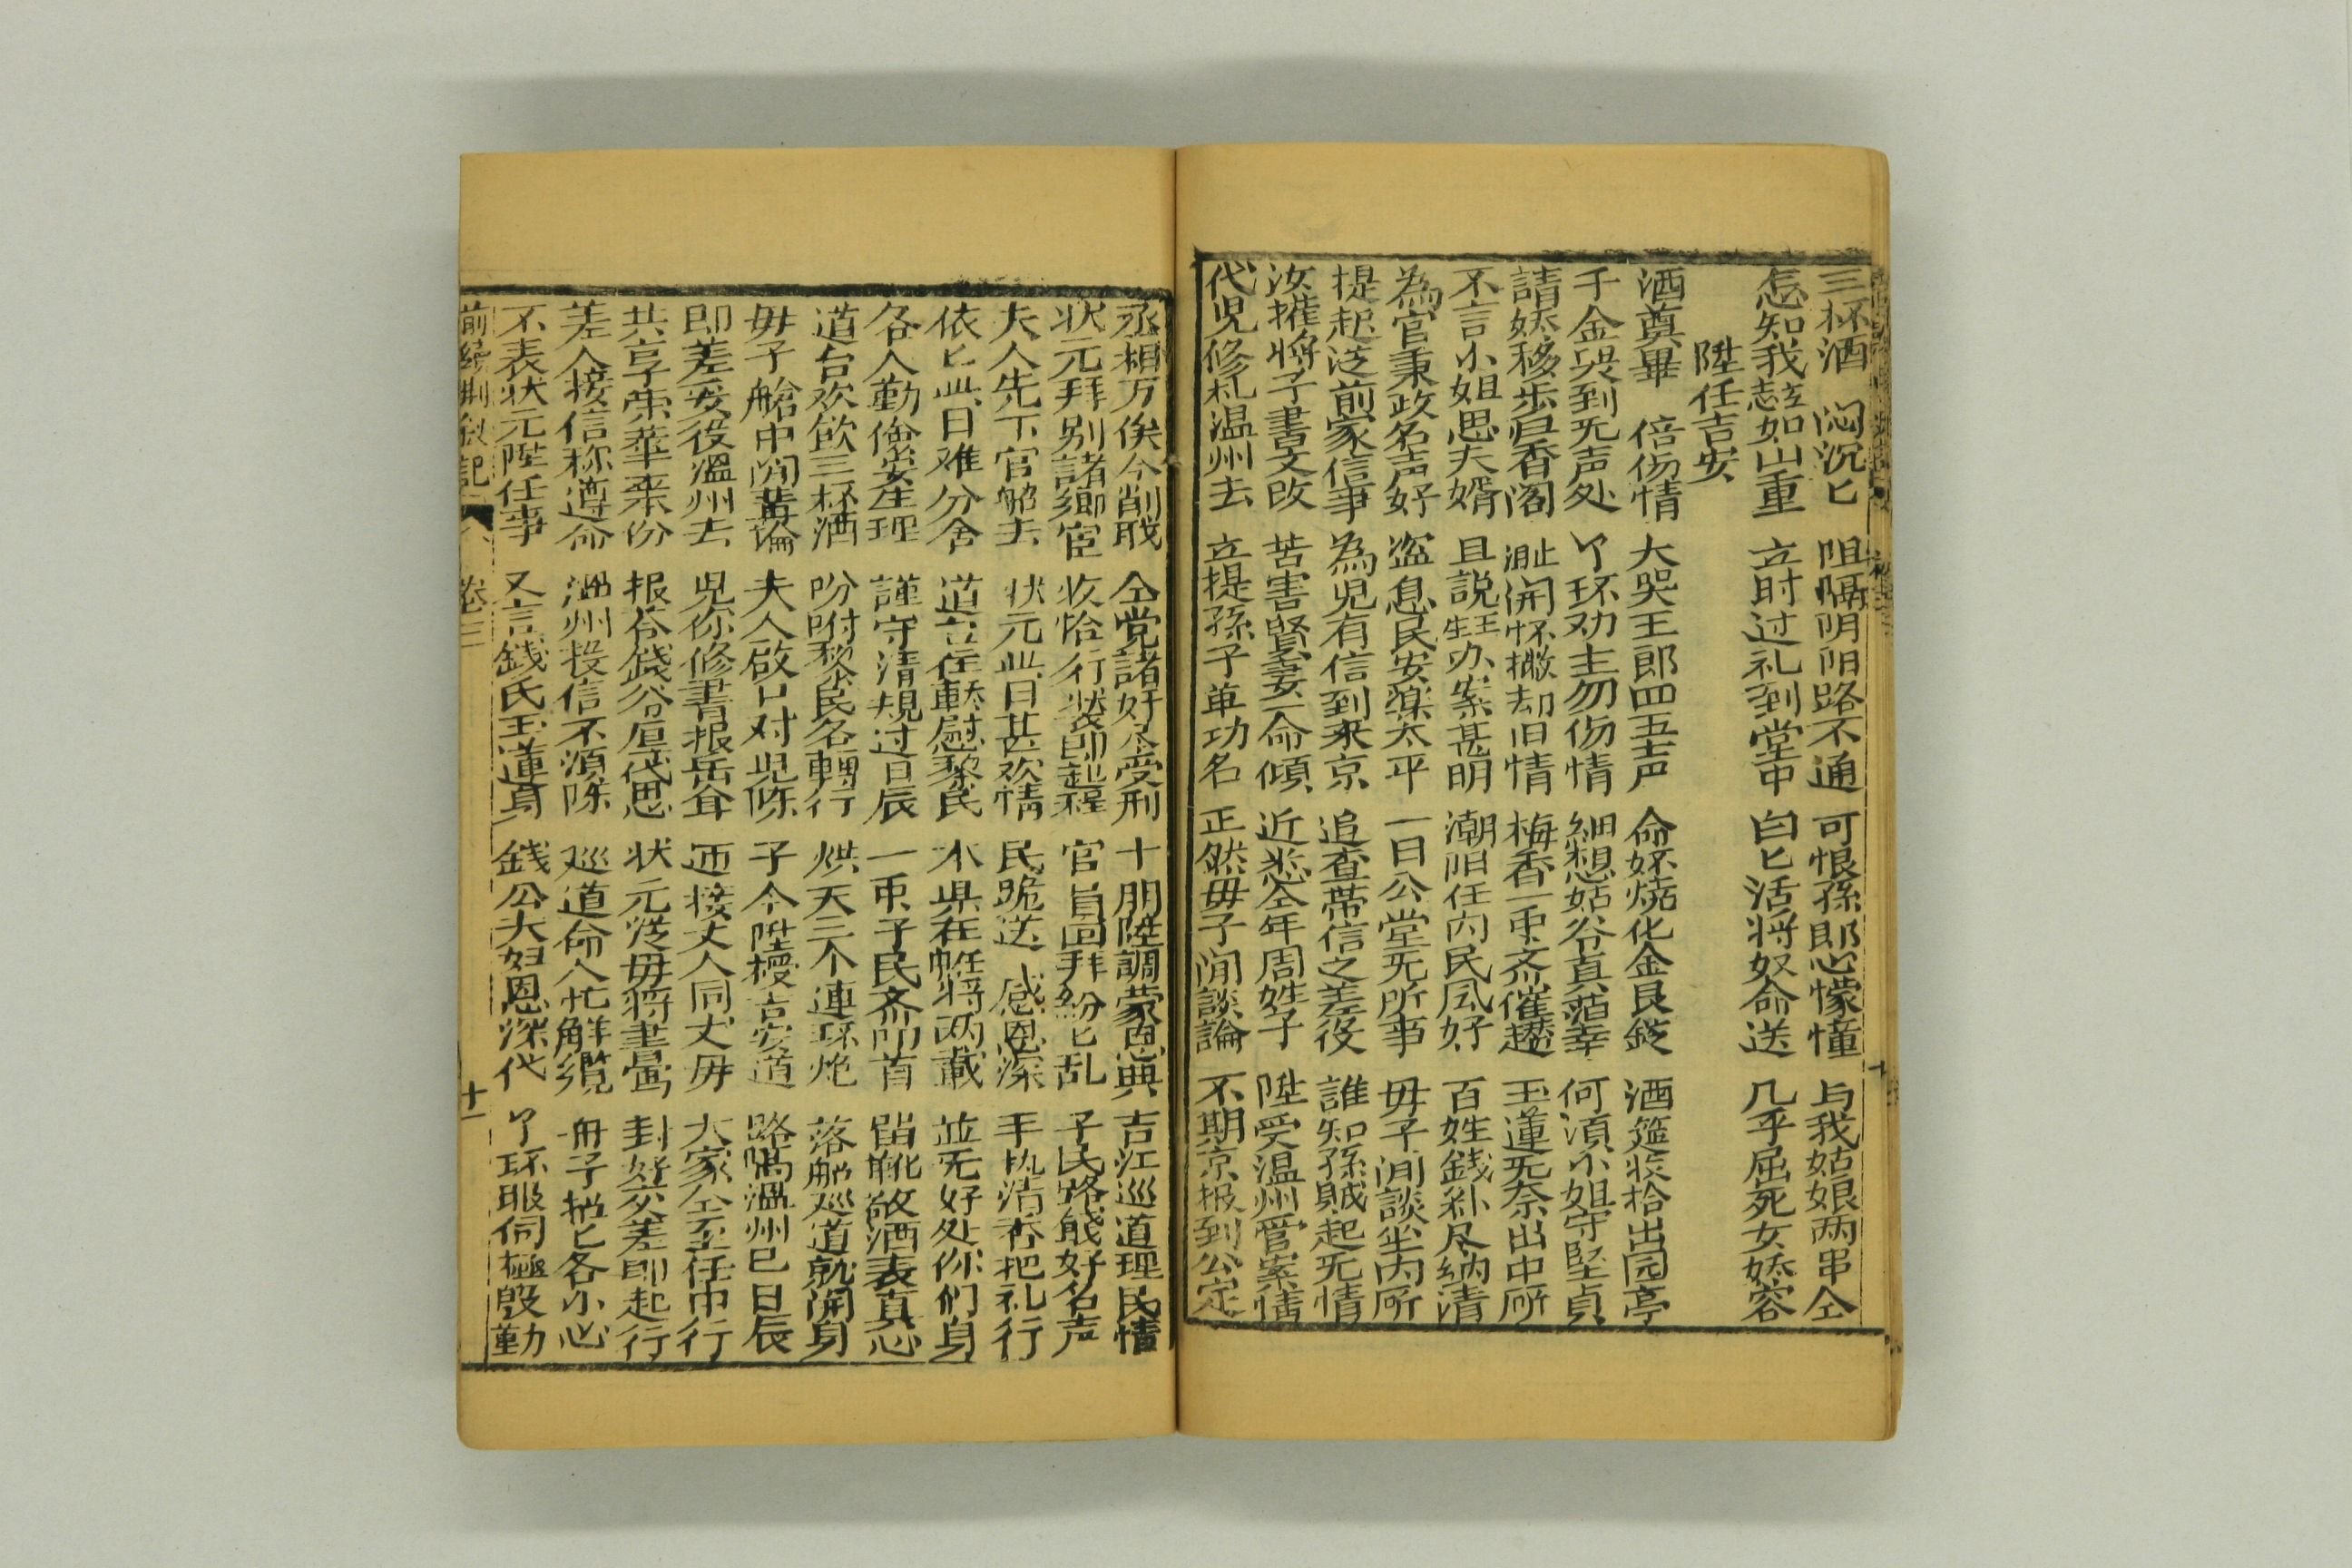 三杯酒 闷沉匕 阻隔阴阳路不通 可恨孫郎心懞憧 与我姑娘两串仝
怎知我 如山重 立时过礼到堂中 白匕活将奴命送 几乎屈死女娇容
陞任吉安
酒奠畢 倍伤情 大哭王郎四五声 命奴燒化金艮錢 酒筵收拾出园亭
千金哭到无声处 丫环劝主勿伤情 細想姑爷真薄幸 何湏小姐守堅貞
請娇移步归香阁 开怀撇却旧情 梅香一重齐催趱 玉蓮无奈出中所
不言小姐思夫婿 且説生王办案甚明 潮阳任内民風好 百姓錢粮尽納清
為官秉政名声好 盗息民安樂太平 一日公堂无所事 毋子闲談坐内所
提起前家信事 為児有信到來京 追查带信之差役 誰知孫賊起无情
汝撁將子書文改 苦害賢妻一命傾 近悉仝年周姓子 陞受温州管案情
代児修札温州去 立提孫子革功名 正然毋子閒談論 不期京报到公定
丞相万俟今削职 仝党諸奸尽受刑 十朋陞調蒙恩典 吉江巡道理民情
状元拜别諸鄉宦 收恰行裝即起程 官員回拜紛匕乱 子民路餞好名声
夫人先下官船去 状元此日甚欢情 民跪送 感恩深 手执清香把礼行
依匕此日难分舍 道台在轎慰黎民 本県在帷將两載 並无好处你们身
各人勤儉安生理 謹守清規过日辰 一重子民齐叩首 留靴敬酒表真心
道台欢飲三杯酒 吩咐黎民名轉行 烘天三个連环炮 落船巡道就開身
毋子艙中閒講論 夫人啟口对児陈 子今陞擢吉安道 路隔温州已日辰
即差妥役溫州去 児你修書报岳翁 迎接丈人同丈毋 大家仝至任中行
共亨荣華来份 报答錢爷厚貸恩 状元從毋將書寫 封好交差即起行
差人接信称遵命 溫州投信不湏陈 巡道命人忙解纜 舟子揺匕各小心
不表状元陞任事 又言錢氏玉蓮身 錢公夫妇恩深代 丫环服伺極殷勤
前續荆釵記 卷三 十一